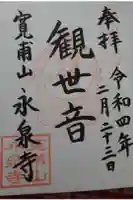 奉拝
令和四年
二月二十三日
観世音
寛甫山 永泉寺